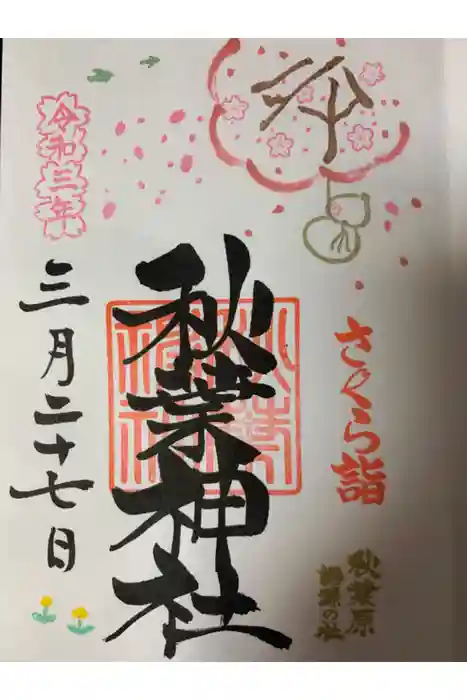 さくら詣
秋葉原
語源の社
秋葉神社
令和三年
三月二十七日